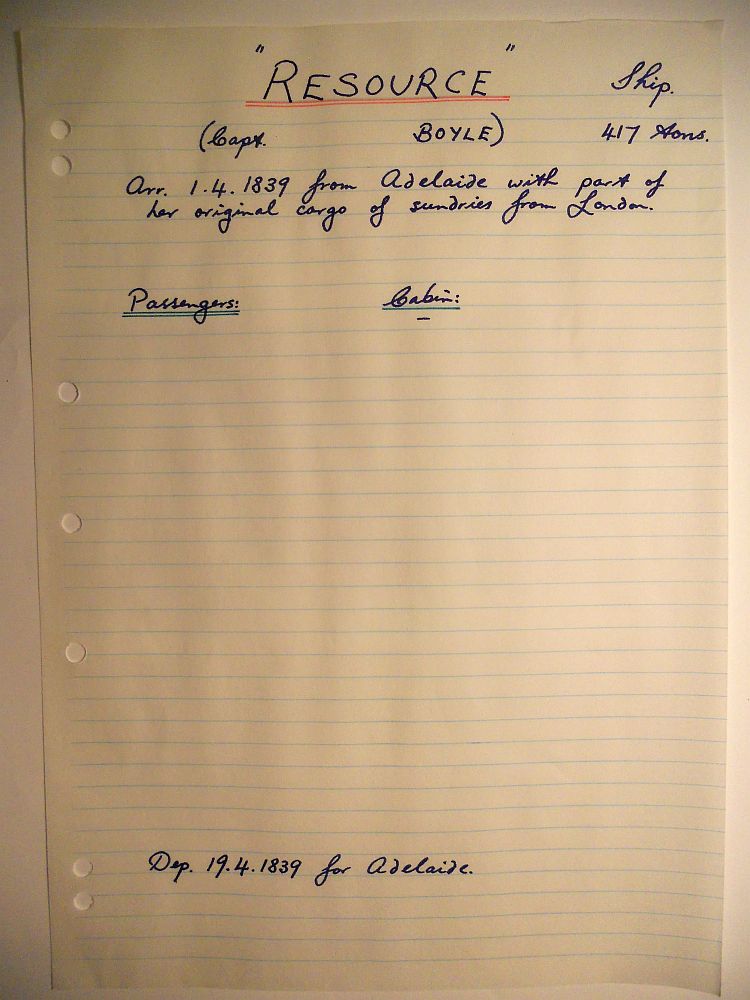 "RESOURCE" Ship.
(Capt. BOYLE) 417 tons.
Arr. 1.4.1839 from Adelaide with part of
her original cargo of sundries from London.
Passengers: Cabin:
–
Dep. 19.4.1839 for Adelaide.